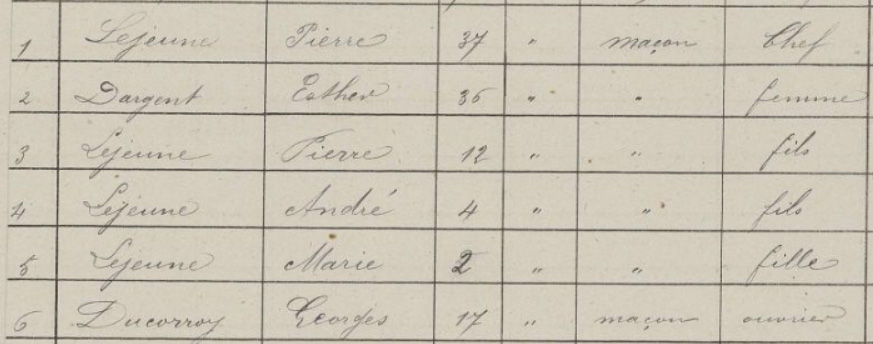 1 Lejeune Pierre 37 " maçon Chef
2 Dargent Esther 36 " " femme
3 Lejeune Pierre 12 " " fils
4 Lejeune André 4 " " fils
5 Lejeune Marie 2 " " fille
6 Ducorroy Georges 17 " maçon ouvrier